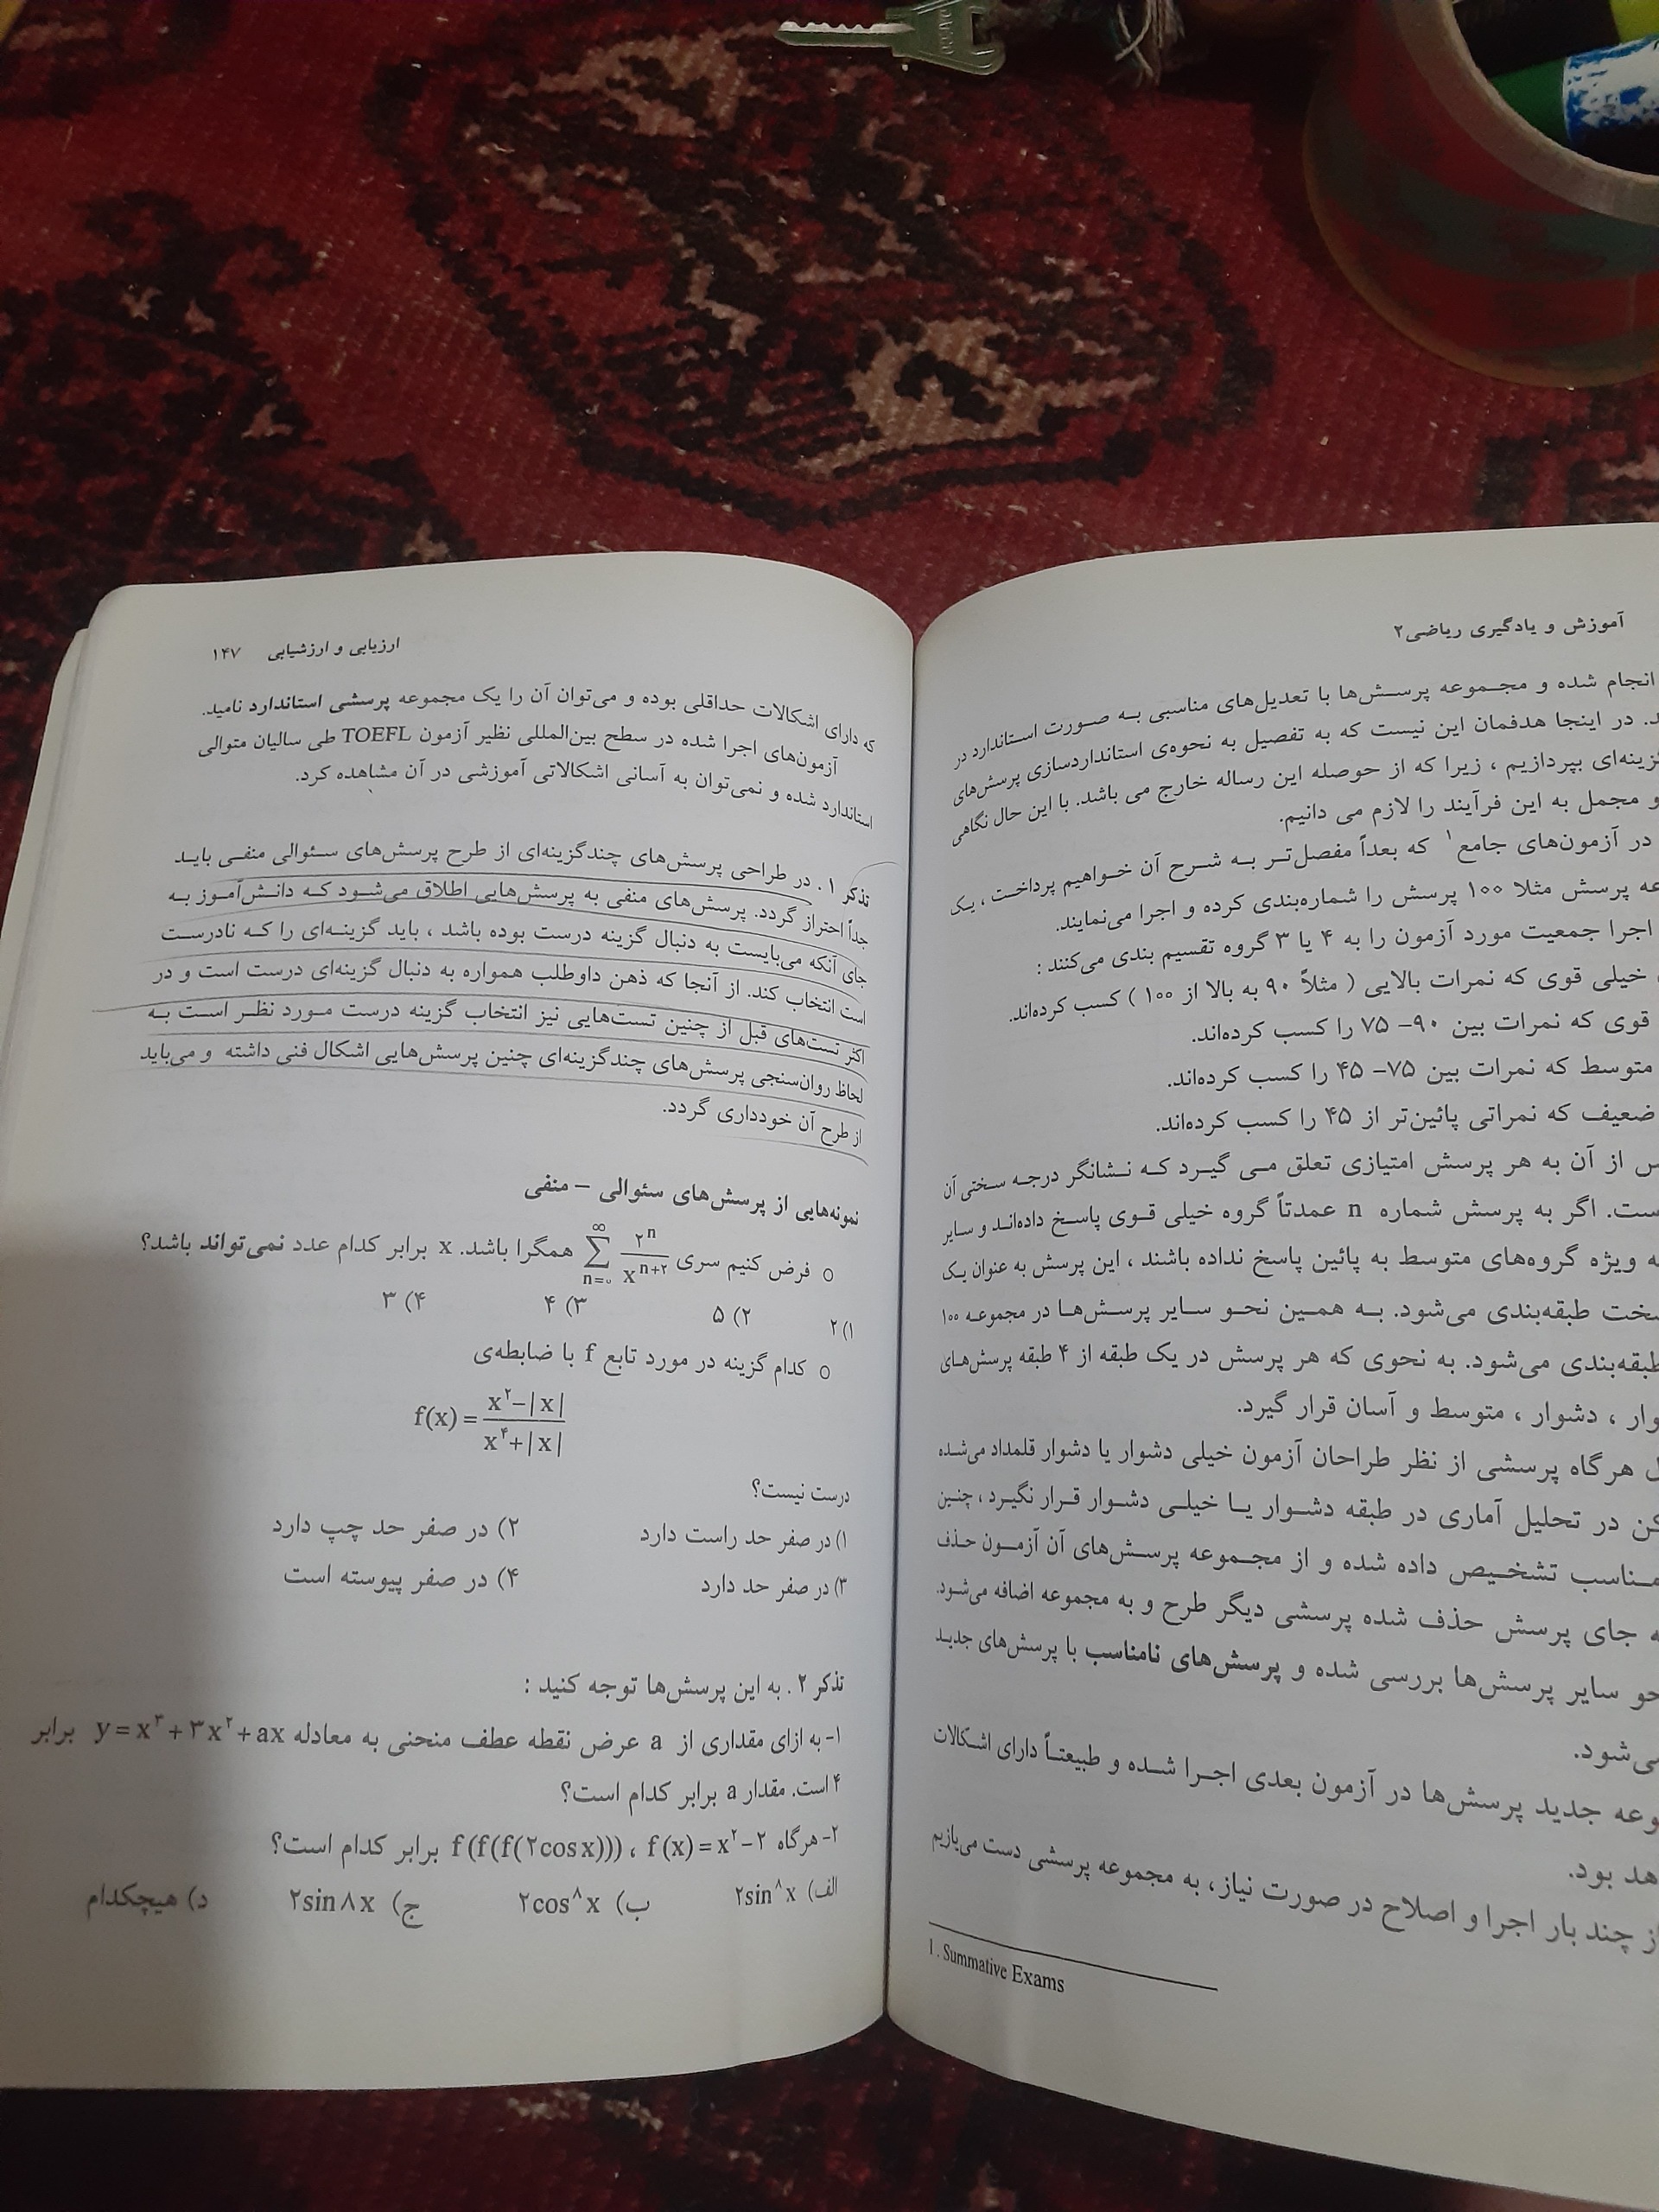 آموزش و یادگیری ریاضی۲
انجام شده و مجـموعه پرسـش‌ها با تعدیل‌های مناسبی بـه صـورت اسـتاندارد در
د. در اینجا هدفمان این نیست که به تفصیل به نحوه‌ی استانداردسازی پرسش‌های
گزینه‌ای بپردازیم ، زیرا که از حوصله این رساله خارج می باشد. با این حال نگاهی
و مجمل به این فرآیند را لازم می دانیم.
در آزمون‌های جامع۱ که بعداً مفصل‌تـر بـه شـرح آن خـواهیم پرداخـت ، یـک
عه پرسش مثلا ۱۰۰ پرسش را شماره‌بندی کرده و اجرا می‌نمایند.
اجرا جمعیت مورد آزمون را به ۴ یا ۳ گروه تقسیم بندی می‌کنند :
خیلی قوی که نمرات بالایی ( مثلاً ۹۰ به بالا از ۱۰۰ ) کسب کرده‌اند.
قوی که نمرات بین ۹۰– ۷۵ را کسب کرده‌اند.
متوسط که نمرات بین ۷۵– ۴۵ را کسب کرده‌اند.
ضعیف که نمراتی پائین‌تر از ۴۵ را کسب کرده‌اند.
س از آن به هر پرسش امتیازی تعلق مـی گیـرد کـه نـشانگر درجـه سـختی آن
ست. اگر به پرسش شماره n عمدتاً گروه خیلی قـوی پاسـخ داده‌انـد و سـایر
ه ویژه گروه‌های متوسط به پائین پاسخ نداده باشند ، این پرسش به عنوان یـک
سخت طبقه‌بندی می‌شود. بـه همـین نحـو سـایر پرسـش‌هـا در مجموعـه ۱۰۰
طبقه‌بندی می‌شود. به نحوی که هر پرسش در یک طبقه از ۴ طبقه پرسش‌هـای
وار ، دشوار ، متوسط و آسان قرار گیرد.
ل هرگاه پرسشی از نظر طراحان آزمون خیلی دشوار یا دشوار قلمداد می‌شـده
کن در تحلیل آماری در طبقه دشوار یـا خیلـی دشـوار قـرار نگیـرد ، چنـین
مـناسب تشخـیص داده شده و از مجـموعه پرسـش‌های آن آزمـون حـذف
ه جای پرسش حذف شده پرسشی دیگر طرح و به مجموعه اضافه می‌شود.
حو سایر پرسش‌ها بررسی شده و پرسش‌های نامناسب با پرسش‌های جدیـد
می‌شود.
وعه جدید پرسش‌ها در آزمون بعدی اجـرا شـده و طبیعتـاً دارای اشـکالات
هد بود.
از چند بار اجرا و اصلاح در صورت نیاز، به مجموعه پرسشی دست می‌یازیم
1 . Summative Exams
ارزیابی و ارزشیابی ۱۴۷
که دارای اشکالات حداقلی بوده و می‌توان آن را یک مجموعه پرسشی استاندارد نامید.
آزمون‌های اجرا شده در سطح بین‌المللی نظیر آزمون TOEFL طی سالیان متوالی
استاندارد شده و نمی‌توان به آسانی اشکالاتی آموزشی در آن مشاهده کرد.
تذکر ۱. در طراحی پرسش‌های چندگزینه‌ای از طرح پرسش‌های سـئوالی منفـی بایـد
جداً احتراز گردد. پرسش‌های منفی به پرسش‌هایی اطلاق می‌شـود کـه دانـش‌آمـوز بـه
جای آنکه می‌بایست به دنبال گزینه درست بوده باشد ، باید گزینـه‌ای را کـه نادرسـت
است انتخاب کند. از آنجا که ذهن داوطلب همواره به دنبال گزینه‌ای درست است و در
اکثر تست‌های قبل از چنین تست‌هایی نیز انتخاب گزینه درست مـورد نظـر اسـت بـه
لحاظ روان‌سنجی پرسش‌های چندگزینه‌ای چنین پرسش‌هایی اشکال فنی داشته و می‌باید
از طرح آن خودداری گردد.
نمونه‌هایی از پرسش‌های سئوالی – منفی
○ فرض کنیم سری ∑_{n=۰}^{∞} ۲ⁿ/x^{n+۲} همگرا باشد. x برابر کدام عدد نمی‌تواند باشد؟
۱) ۲ ۲) ۵ ۳) ۴ ۴) ۳
○ کدام گزینه در مورد تابع f با ضابطه‌ی
f(x) = (x^۲ – |x|)/(x^۴ + |x|)
درست نیست؟
۱) در صفر حد راست دارد ۲) در صفر حد چپ دارد
۳) در صفر حد دارد ۴) در صفر پیوسته است
تذکر ۲ . به این پرسش‌ها توجه کنید :
۱- به ازای مقداری از a عرض نقطه عطف منحنی به معادله y = x^۳ + ۳x^۲ + ax برابر
۴ است. مقدار a برابر کدام است؟
۲- هرگاه f(x) = x^۲ – ۲ ، f(f(f(۲cosx))) برابر کدام است؟
الف) ۲sin^۸ x ب) ۲cos^۸ x ج) ۲sin۸x د) هیچکدام